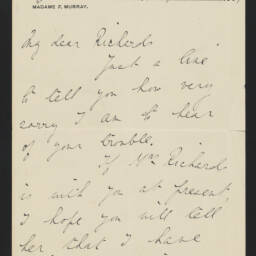 MADAME F. MURRAY.
My dear Richards
Just a line
to tell you how very
sorry I am to hear
of your trouble.
If Mrs Richards
is with you at present,
I hope you will tell
her that I have